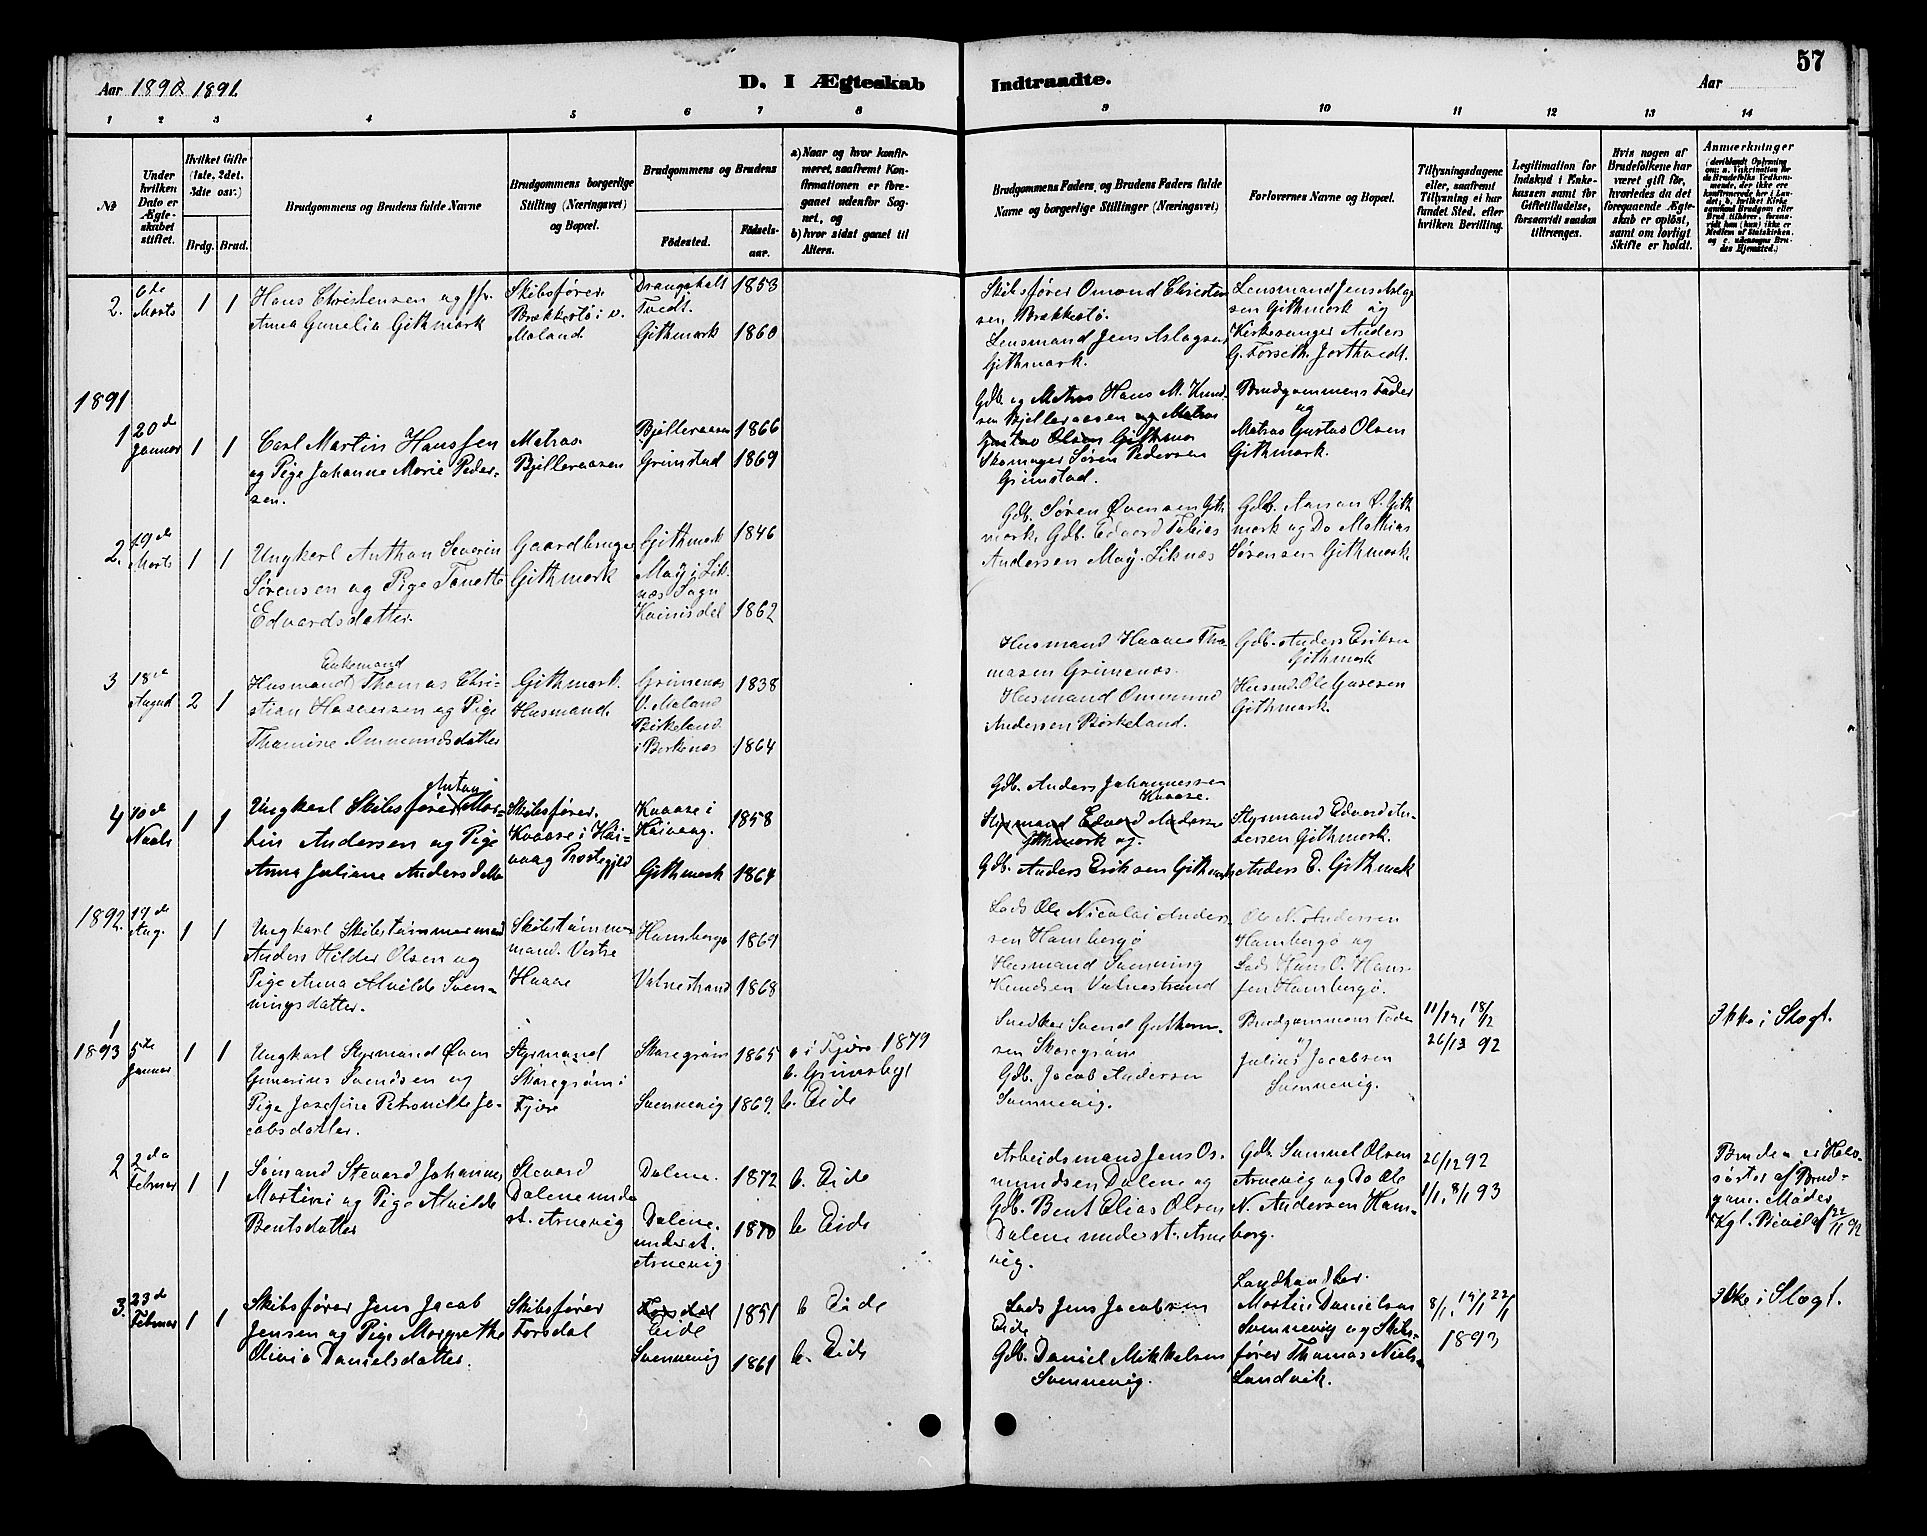 57
Aar 1890 1891.
D. I Ægteskab
Indtraadte.
Aar
1 2 3 4 5 6 7 8
9 10 11 12 13 14
№
Under
hvilken
Dato er
Ægte-
skabet
stiftet.
Hvilket Gifte
(1ste, 2det,
3die osv.)
Brdg. Brud.
Brudgommens og Brudens fulde Navne
Brudgommens borgerlige
Stilling (Næringsvei)
og Bopæl.
Brudgommens og Brudens
Fødested.
Fødsels-
aar.
a) Naar og hvor konfir-
meret, saafremt Kon-
firmationen er fore-
gaaet udenfor Sog-
net, og
b) hvor sidst gaaet til
Alters.
Brudgommens Faders, og Brudens Faders fulde
Navne og borgerlige Stillinger (Næringsvei)
Forlovernes Navne og Bopæl.
Tillysningsdagene
eller, saafremt
Tillysning ei har
fundet Sted, efter
hvilken Bevilling.
Legitimation for
Indskud i Enke-
kassen samt for
Giftetilladelse,
forsaavidt saadan
tiltrænges.
Hvis nogen af
Brudefolkene har
været gift før,
hvorledes da det
foregaaende Ægte-
skab er opløst,
samt om lovligt
Skifte er holdt.
Anmærkninger
2.
6te
Marts
1 1
Hans Christensen og
Anna Gunelia Githmark
Skibsfører
Brækkestø i V.
Moland
Tvedt.
Githmark
1853
1860
Skibsfører Omond Christen
sen Brækkestø.
Lensmand Jens Aslagsen
Githmark.
Lensmand Jens Aslag
sen Githmark og
Kirkesanger Anders
G. Forseth
1891
1
20de
Januar
1 1
Carl Martin Hanssen
og Pige Johanne Marie Peder-
sen.
Matros
Bjelleraasen
Bjelleraasen
Grimstad
1866
1869
Gdb. og Matros Hans M. Knud-
sen Bjelleraasen og Matros
Gustav Olsen Githmar
Skomager Søren Pedersen
Grimstad.
Brudgommens Fader
og
Matros Gustav Olsen
Githmark.
2.
19de
Marts
1 1
Ungkarl Anthon Severin
Sørensen og Pige Tonette
Edvardsdatter.
Gaardbruger
Githmark
Githmark
Møy i Lik-
næs Sogn
1846
1862
Gdb. Søren Øvensen Gith
mark Gdb. Edvard Tobias
Andersen Møy Liknæs
Gdb. Aanon O. Gith
mark og Do Mathias
Sørensen Githmark.
3
18de
August
2 1
Enkemand
Husmand Thomas Chri-
stian Haavorsen og Pige
Thomine Ommundsdatter
Githmark.
Husmand.
Grimenæs
V. Moland
Birkeland
i Birkenæs
1838
1864
Husmand Haaver Tho-
masen Grimenæs.
Husmand Ommund
Andersen Birkeland.
Gdb. Anders Eriksen
Githmark
Husmd. Ole Gusesen
Githmark.
4
10de
1 1
Anton
Ungkarl Skibsfører Mar-
tin Andersen og Pige
Anna Juliane Andersdatter
Skibsfører.
Kvaase i Høi-
vaag Præstegjeld
Kvaase i
Høivaag.
Githmark
1858
1864
Gdb. Anders Johannessen
Kvaase.
Styrmand Edvard Andersen
Githmark og
Gdb. Anders Eriksen Githmark
Styrmand Edvard An-
dersen Githmark.
Anders E. Githmark
1892.
19de
Aug.
1 1
Ungkarl Skibstømmermand
Anders Hilder Olsen og
Pige Anna Alvilde Sven-
ningsdatter.
Skibstømmer
mand. Vestre
Haaøe
Hombergø
Valnestrand
1869
1868
Lods Ole Nicolai Ander
sen Hombergø
Husmand Svenning
Knudsen Valnestrand
Ole N. Andersen
Hombergø og
Lods Hans O. Han-
sen Hombergø.
1
1893
5te
Januar
1 1
Ungkarl Styrmand Øven
Gumerius Svendsen og
Pige Josefine Petronille Ja-
cobsdatter.
Styrmand
Skaregrøm i
Fjære
Skaregrøm
Svennevig
1865
1869.
a. i Fjære 1879
b. Grimsby
b. Eide
Snedker Svend Guthorm-
sen Skaregrøm
Gdb. Jacob Andersen
Svennevig.
Brudgommens Fader
og
Julius Jacobsen
Svennevig.
11/12, 18/12
26/12 92
Ikke i Slægt.
2
2den
Februar
1 1
Sømand Stevard Johannes
Martini og Pige Alvilde
Bentsdatter
Stevard
Dalene under
st. Arnevig
Dalene.
Dalene.
under st.
Arnevig
1872
1870
b. Eide
b. Eide
Arbeidsmand Jens Os-
mundsen Dalene og
Gdb. Bent Elias Olsen
Dalene under st. Arne
vig.
Gdb. Samuel Olsen
Arnevig og Do Ole
N. Andersen Hom-
borg.
26/12 92
1/1, 8/1 93
Bruden er Halv-
søster af Brud-
gom. Moder
Kgl. Bevil af 22/11 92
3.
23de
Februar
1 1
Skibsfører Jens Jacob
Jensen og Pige Margrethe
Olivia Danielsdatter.
Skibsfører
Forsdal
Forsdal
Eide
Svennevig
1851
1861
b. Eide
b. Eide
Lods Jens Jacobsen
Eide
Gdb. Daniel Mikkelsen
Svennevig.
Landhandler
Martin Danielsen
Svennevig og Skibs-
fører Thomas Niels-
Landvik.
8/1, 15/1 22/1
1893
Ikke i Slægt.